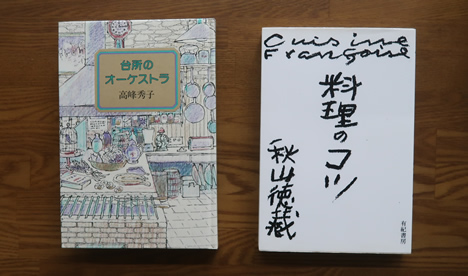 台所の
オーケストラ
高峰秀子
Cuisine
Française
料理のコツ
秋山徳蔵
有紀書房